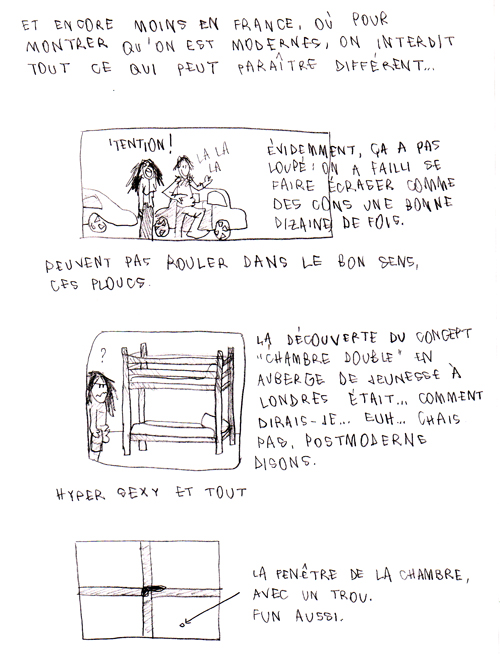 ET ENCORE MOINS EN FRANCE, OÙ POUR
MONTRER QU'ON EST MODERNES, ON INTERDIT
TOUT CE QUI PEUT PARAÎTRE DIFFÉRENT...
'TENTION!
LA LA
LA
ÉVIDEMMENT, ÇA A PAS
LOUPÉ : ON A FAILLI SE
FAIRE ÉCRASER COMME
DES CONS UNE BONNE
DIZAINE DE FOIS.
PEUVENT PAS ROULER DANS LE BON SENS,
CES PLOUCS.
?
LA DÉCOUVERTE DU CONCEPT
"CHAMBRE DOUBLE" EN
AUBERGE DE JEUNESSE À
LONDRES ÉTAIT... COMMENT
DIRAIS-JE... EUH... CHAIS
PAS, POSTMODERNE
DISONS.
HYPER SEXY ET TOUT
LA FENÊTRE DE LA CHAMBRE,
AVEC UN TROU.
FUN AUSSI.